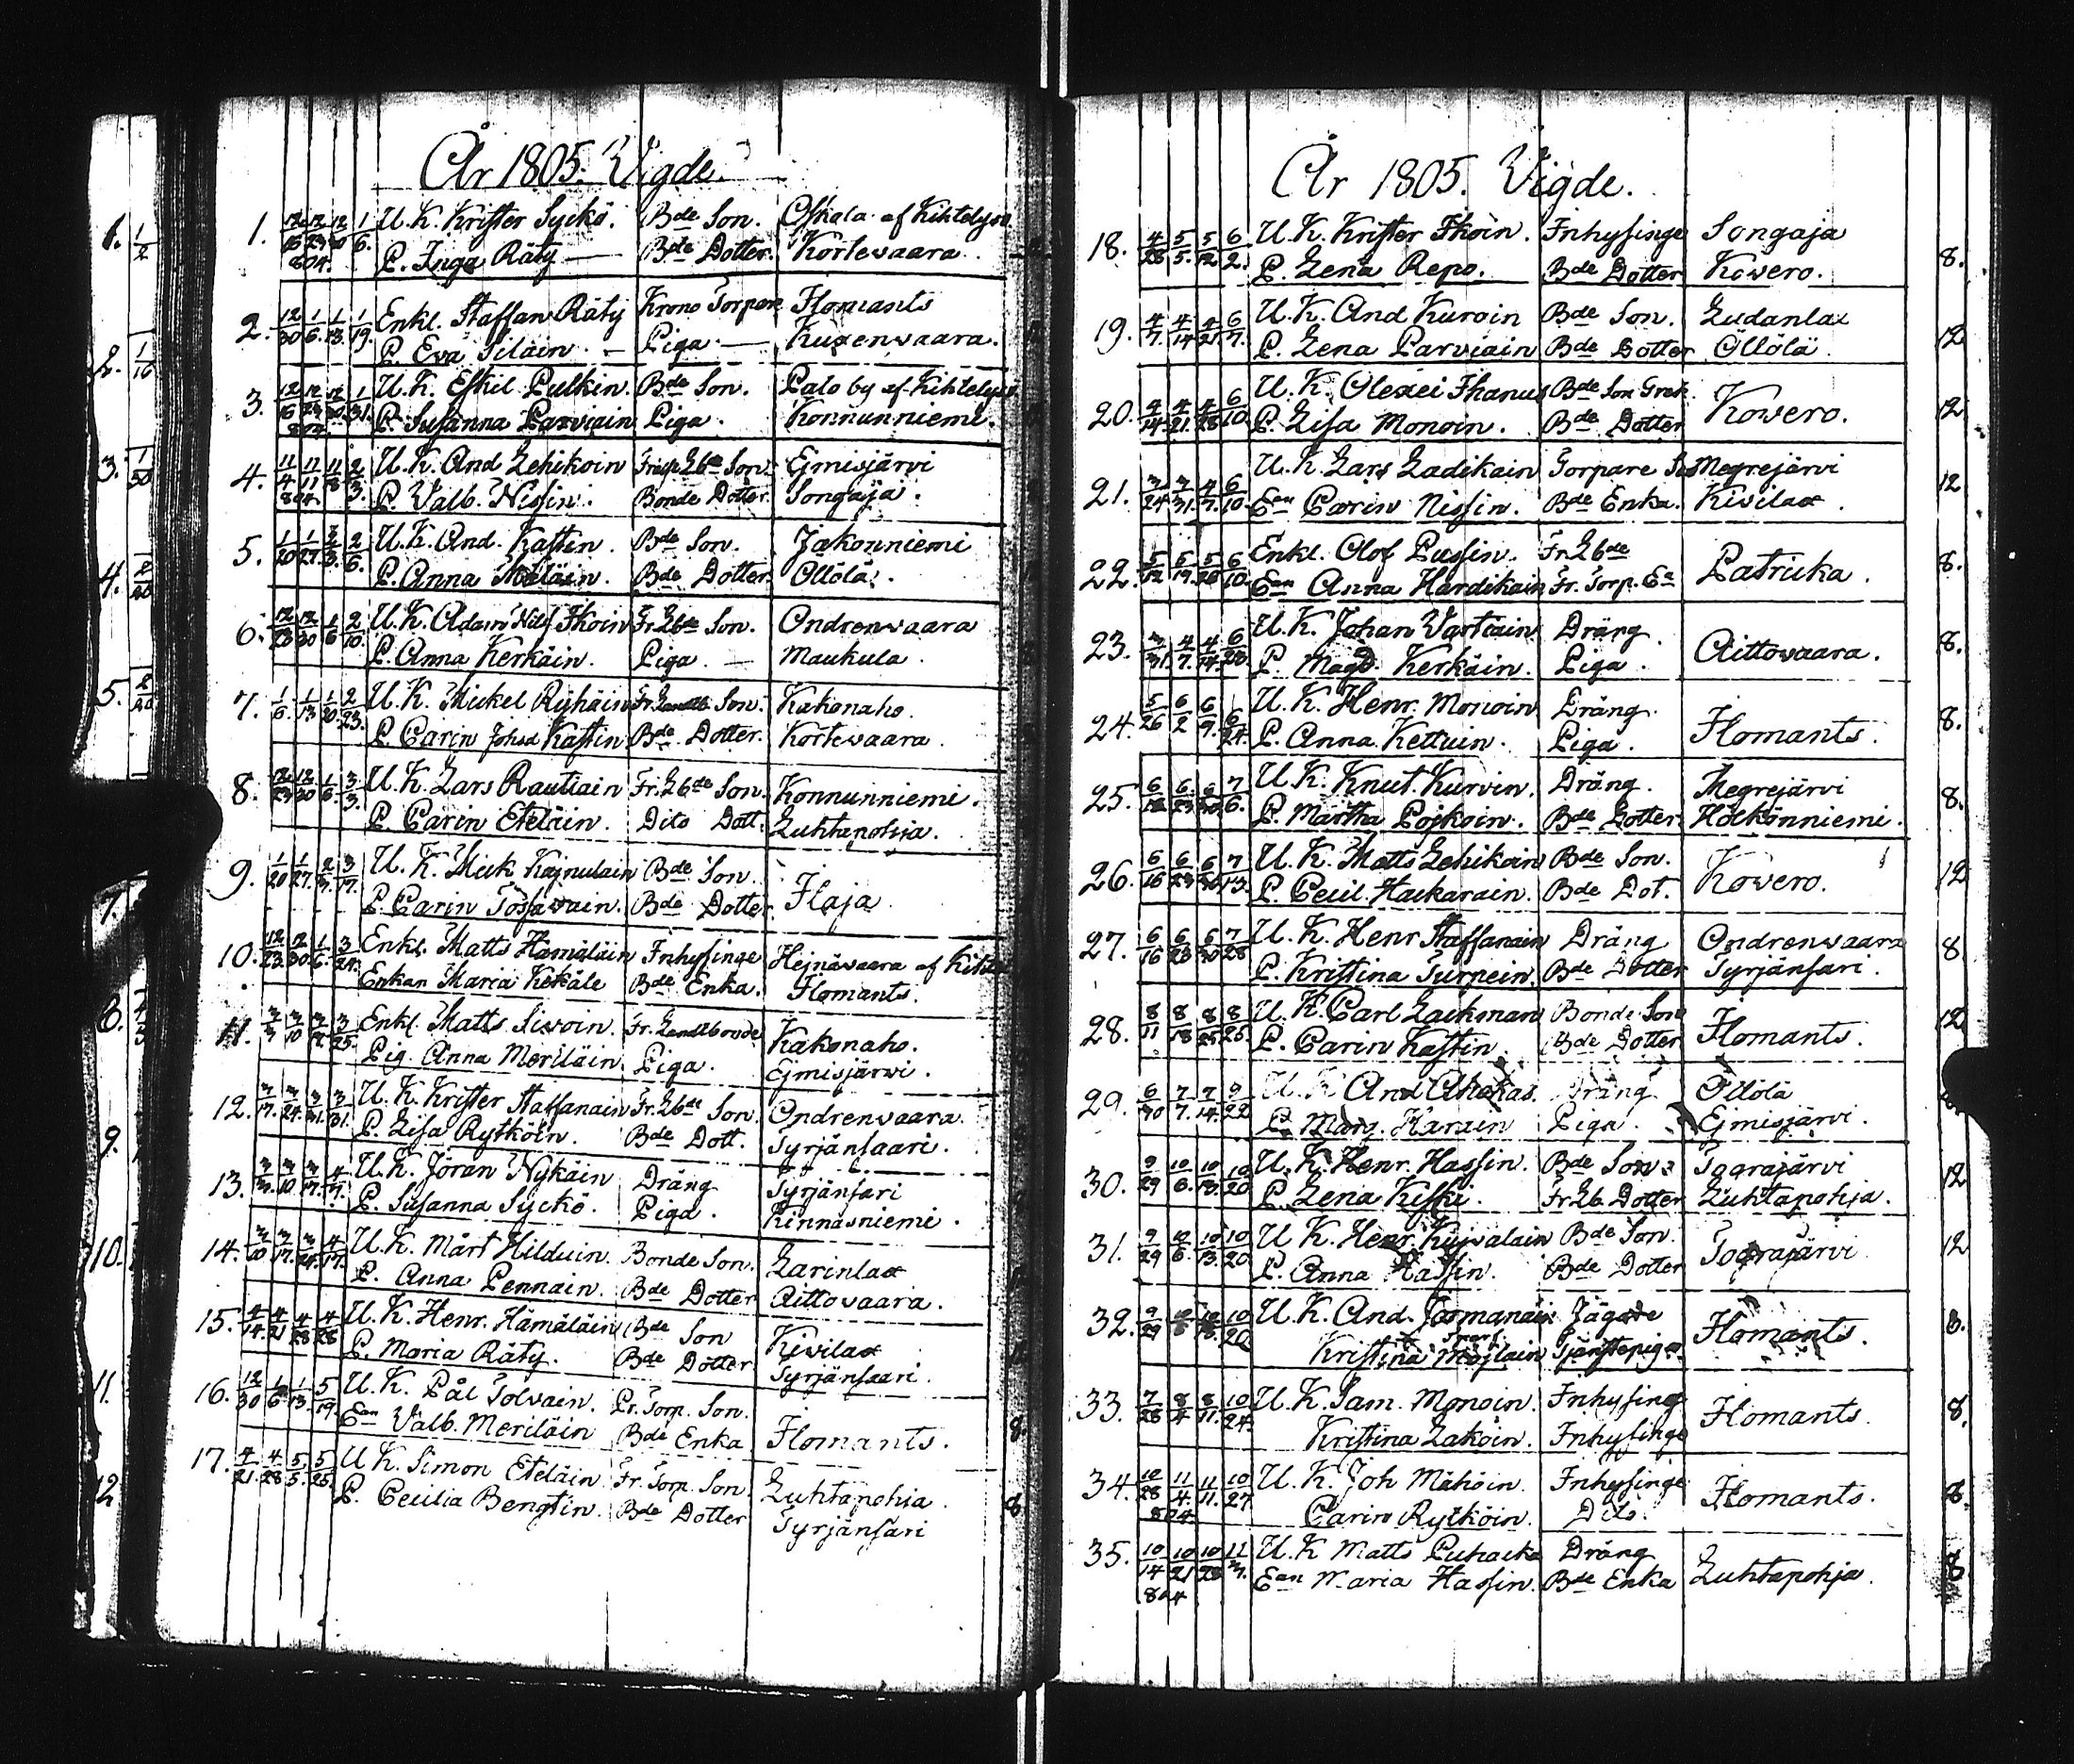 År 1805. Vigde.
1. 12/16 12/23 12/30 1/6. U. K. Krister Syckö. Bde Son. Oskala af Kihtelys
804. P. Inga Räty — Bde Dotter. Kortevaara.
2. 12/30 1/6. 1/13. 1/19. Enkl. Staffan Räty Krono Torpare Ilomants
P. Eva Siläin. — Piga. — Kuxenvaara.
3. 12/16 12/23 12/30 1/31. U. K. Eskil Pulkin. Bde Son. Palo by af Kihtelys
804. P. Susanna Parviain Piga. Konnunniemi.
4. 11/4 11/11 11/18 2/3. U. K. And Lehikoin Lbde Son Ejmisjärvi
804. P. Valb. Nissin. Bonde Dotter. Songaja.
5. 1/20 1/27. 2/3. 2/6. U. K. And. Kastin. Bde Son. Jakonniemi
P. Anna Meläin. Bde Dotter. Ollölä.
6. 12/23 12/30 1/6 2/10. U. K. Adam Nilss Ikoin Fr. Lbde Son. Ondrenvaara
P. Anna Kerkäin. Piga. — Maukula.
7. 1/6. 1/13 1/20. 2/23. U. K. Mickel Ryhäin Fr. Landtb. Son. Kakonaho.
P. Carin Johsd Kastin Bde Dotter. Kortevaara.
8. 12/23 12/30 1/6. 3/3. U. K. Lars Rautiain Fr. Lbde Son. Konnunniemi.
P. Carin Eteläin. Dito Dott. Luhtapohja.
9. 1/20 1/27. 2/3. 3/17. U. K. Mick Kajnulain Bde Son. Ilaja
P. Carin Tossavain. Bde Dotter
10. 12/23. 12/30. 1/6. 3/24. Enkl. Matts Hämäläin Inhysinge Hejnävaara af Kihtel
Enkan Maria Kekäle Bde Enka. Ilomants.
11. 3/3 3/10 3/17. 3/25. Enkl. Matts Sivoin. Fr. Landtbonde Kakonaho.
Pig. Anna Meriläin. Piga. Ejmisjärvi.
12. 3/17. 3/24. 3/31. 3/31. U. K. Krister Staffanain Fr. Lbde Son. Ondrenvaara.
P. Lisa Rytköin. Bde Dott. Syrjänsaari.
13. 3/3. 3/10. 3/17. 4/7. U. K. Jöran Nykäin Dräng Syrjänsari
P. Susanna Syckö. Piga. Kinnasniemi.
14. 3/10 3/17. 3/24. 4/17. U. K. Mårt Hilduin. Bonde Son. Larinlax
P. Anna Pennain. Bde Dotter Aittovaara.
15. 4/14. 4/21 4/28 4/28 U. K. Henr. Hämäläin Bde Son Kivilax
P. Maria Räty. Bde Dotter Syrjänsaari.
16. 12/30 1/6 1/13. 5/19. U. K. Pål Tolvain. Fr. Torp. Son. Ilomants. 8.
Ean Valb. Meriläin Bde Enka
17. 4/21. 4/28 5/5. 5/25. U. K. Simon Eteläin Fr. Torp. Son. Luhtapohia. 8
P. Cecilia Bengtin. Bde Dotter Syrjänsari
År 1805. Vigde.
18. 4/28 5/5. 5/12 6/2. U. K. Krister Ikoin. Inhysinge Songaja 8.
P. Lena Repo. Bde Dotter Kowero.
19. 4/7. 4/14 4/21. 6/7. U. K. And Kuroin Bde Son. Ludanlax 12
P. Lena Parviain Bde Dotter Ollölä.
20. 4/14. 4/21. 4/28 6/10. U. K. Olexei Ihanus Bde Son Grek. Kowero. 12.
P. Lisa Monoin. Bde Dotter
21. 3/24 3/31. 4/7. 6/10. U. K. Lars Ladikain Torpare Megrejärvi 12
Ean Carin Nissin. Bde Enka. Kivilax.
22. 5/12 5/19. 5/26 6/10. Enkl. Olof Pussin. Fr Lbde Patrikka. 8.
Ean Anna Hardikain Fr. Torp. Ea
23. 3/31. 4/7. 4/14. 6/23. U. K. Johan Vartiain Dräng. Aittovaara. 8.
P. Magd. Kerkäin. Piga.
24. 5/26 6/2 6/9. 6/24. U. K. Henr. Monoin Dräng. Ilomants. 8.
P. Anna Kettuin. Piga.
25. 6/16 6/23 6/30. 7/6. U. K. Knut Kurvin. Dräng. Megrejärvi 8.
P. Märtha Pojkoin. Bde Dotter Höckönniemi.
26. 6/16 6/23 6/30 7/13. U. K. Matts Lehikoin Bde Son. Kowero. 12
P. Cecil. Hackarain. Bde Dot.
27. 6/16 6/23 6/30 7/28 U. K. Henr Staffanain Dräng Ondrenvaara 8
P. Kristina Turpein. Bde Dotter Syrjänsari.
28. 8/11 8/18 8/25 8/25. U. K. Carl Lackman Bonde Son Ilomants. 12
P. Carin Kastin Bde Dotter
29. 6/30 7/7. 7/14. 9/22 U. K And Ahokas. Dräng Ollölä
P. Marg. Karain Piga. Ejmisjärvi.
30. 9/29 10/6. 10/13. 10/20 U. K. Henr. Hassin. Bde Son. Tograjärvi 12
P. Lena Kiski. Fr. Lb. Dotter Luhtapohja.
31. 9/29 10/6. 10/13. 10/20 U. K. Henr. Kujvalain Bde Son. Tograjärvi 12
P. Anna Hassin. Bde Dotter
32. 9/29 10/6 10/13. 10/20 U. K. And. Jormanain Jägare Ilomants. 8.
Kristina Mojlain Tjänstepiga
33. 7/28 8/4 8/11. 10/24. U. K. Sam. Monoin. Inhysing Ilomants. 8.
Kristina Lakoin. Inhysinge
34. 10/28 11/4. 11/11. 10/27. U. K. Joh Mähöin. Inhysinge Ilomants. 8.
804. Carin Rytköin. Dito.
35. 10/14 10/21 10/28 11/3. U. K Matts Puhacka Dräng Luhtapohja. 8
804 Ean Maria Hassin. Bde Enka